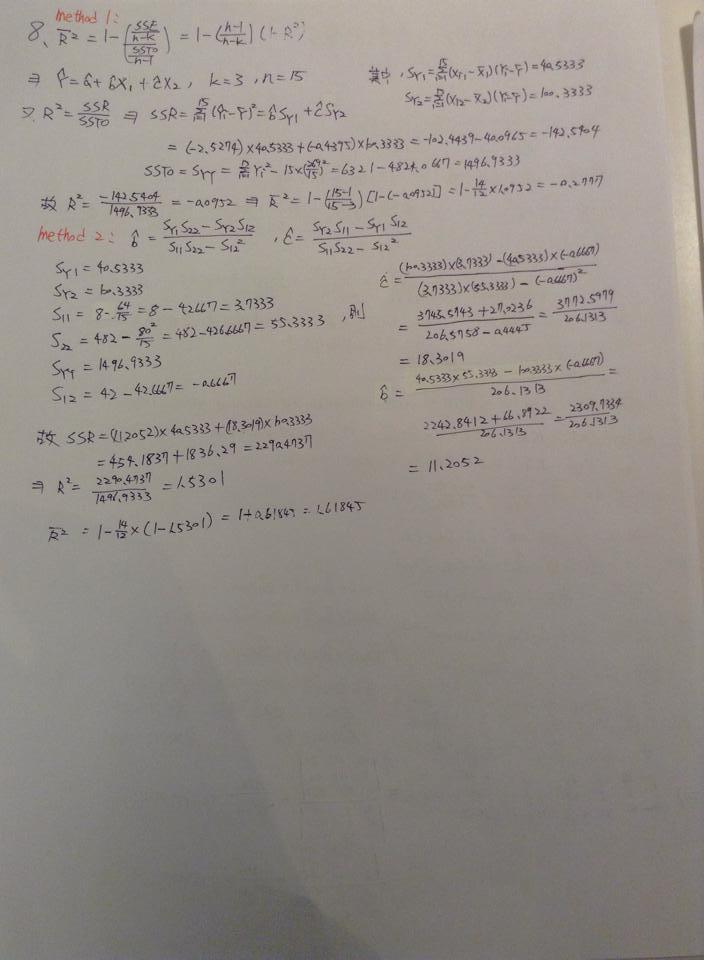 method 1:
8、R̄² = 1-(SSE/(n-k) / SSTO/(n-1)) = 1-((n-1)/(n-k))(1-R²)
⇒ Ŷ = â + b̂X₁ + ĉX₂, k=3, n=15
其中, S_Y1 = Σ_{i=1}^{15}(X_i1-X̄₁)(Y_i-Ȳ) = 40.5333
S_Y2 = Σ_{i=1}^{15}(X_i2-X̄₂)(Y_i-Ȳ) = 100.3333
又 R² = SSR/SSTO ⇒ SSR = Σ_{i=1}^{15}(Ŷ_i-Ȳ)² = b̂S_Y1 + ĉS_Y2
= (-2.5274)×40.5333+(-0.4395)×100.3333 = -102.4439-40.0965 = -142.5404
SSTO = S_YY = Σ_{i=1}^{15} Y_i² - 15×(269/15)² = 6321-4824.0667 = 1496.9333
故 R² = -142.5404/1496.9333 = -0.0952 ⇒ R̄² = 1-((15-1)/(15-3))[1-(-0.0952)] = 1-14/12×1.0952 = -0.2777
method 2: b̂ = (S_Y1S₂₂-S_Y2S₁₂)/(S₁₁S₂₂-S₁₂²), ĉ = (S_Y2S₁₁-S_Y1S₁₂)/(S₁₁S₂₂-S₁₂²)
S_Y1 = 40.5333
S_Y2 = 100.3333
S₁₁ = 8-64/15 = 8-4.2667 = 3.7333
S₂₂ = 482-80²/15 = 482-426.6667 = 55.3333, 則
S_YY = 1496.9333
S₁₂ = 42-42.6667 = -0.6667
ĉ = ((100.3333)×(3.7333)-(40.5333)×(-0.6667))/((3.7333)×(55.3333)-(-0.6667)²)
= (3745.5743+27.0236)/(206.5758-0.4445) = 3772.5979/206.1313
= 18.3019
b̂ = (40.5333×55.3333-100.3333×(-0.6667))/206.1313 =
(2242.8412+66.8922)/206.1313 = 2309.7334/206.1313
= 11.2052
故 SSR = (11.2052)×40.5333+(18.3019)×100.3333
= 454.1837+1836.29 = 2290.4737
⇒ R² = 2290.4737/1496.9333 = 1.5301
R̄² = 1-14/12×(1-1.5301) = 1+0.61845 = 1.61845